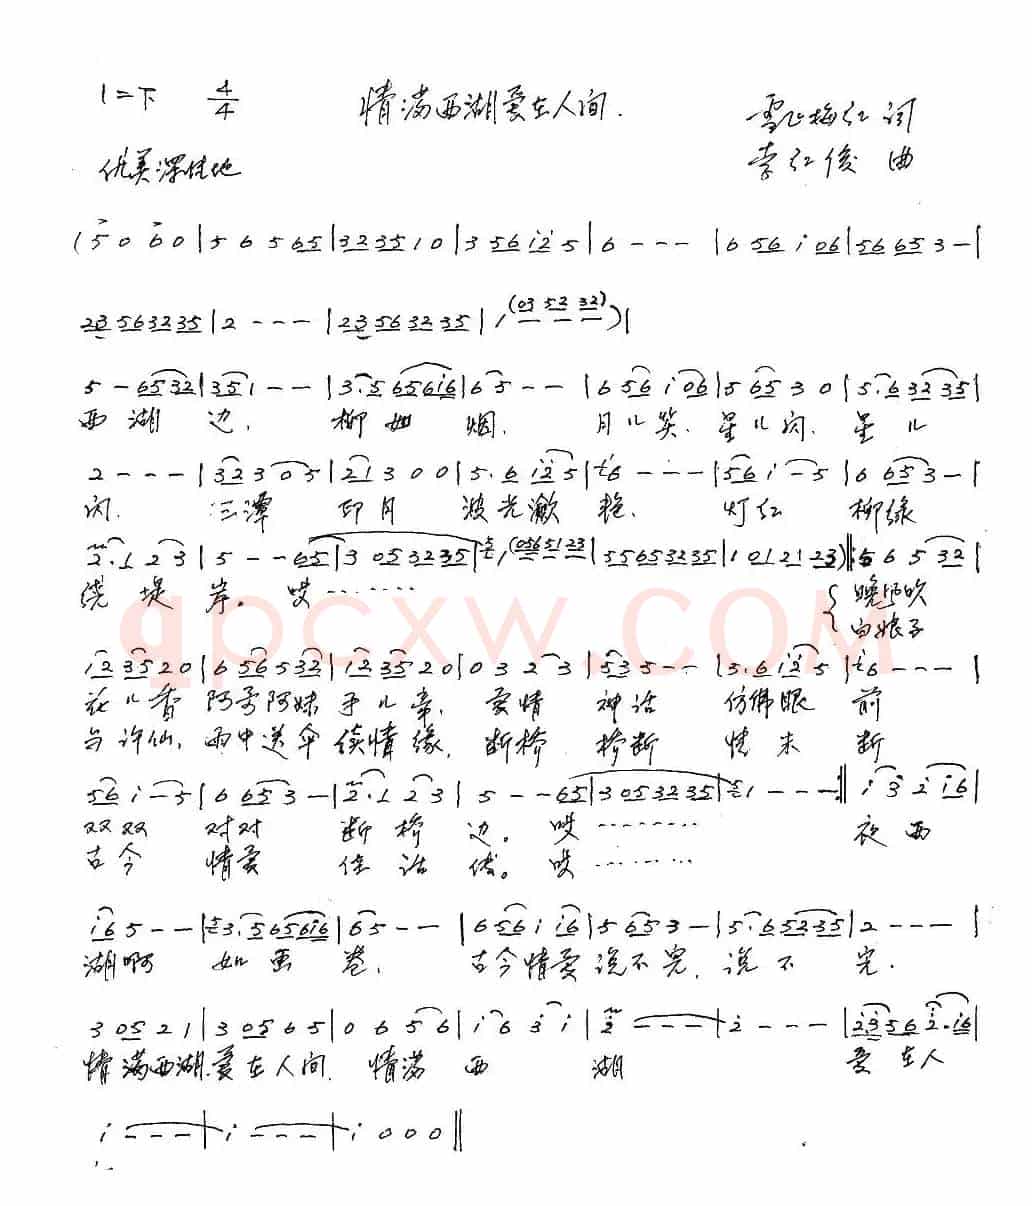 1=F 4/4 情满西湖爱在人间.
雪山梅红 词
优美深情地
李红俊 曲
(5 0 6 0|5 6 5 65|3235 1 0|3 56 i2 5|6 - - -|6 56 i 06|56 65 3 -|
23 56 32 35|2 - - -|23 56 32 35|1 (03 52 32)|
5 - 65 32|35 1 - -|3.5 656i6|6 5 - -|6 56 i 06|5 65 3 0|5.6 32 35|
西湖 边, 柳如 烟, 月儿笑, 星儿闪, 星儿
2 - - -|32 3 0 5|21 3 0 0|5.6 i2 5|6 - - -|56 i - 5|6 65 3 -|
闪. 三潭 印月 波光潋 艳, 灯红 柳绿
2.1 2 3|5 - - 65|3 05 32 35|1 (0565 1 23|55 65 32 35|1 01 21 23)|: 5 6 5 32|
绕 堤 岸。 哎········ 晚风吹
白娘子
12 35 2 0|6 56 5 32|12 35 2 0|0 3 2 3|5 35 - -|3.6 i2 5|6 - - -|
花儿香 阿哥阿妹 手儿牵, 爱情 神话 仿佛眼 前
与许仙, 雨中送伞 续情缘, 断桥 桥断 情未 断
56 i - 5|6 65 3 -|2.1 2 3|5 - - 65|3 05 32 35|1 - - -:|i 3 2 i6|
双双 对对 断桥 边。 哎········ 夜西
古今 情爱 佳话 传。 哎········
i6 5 - -|3.5 656i6|65 - -|6 56 i i6|5 65 3 -|5.6 52 35|2 - - -|
湖啊 如画 卷, 古今情爱 说不完, 说不 完.
3 05 2 1|3 05 6 5|0 6 5 6|i 6 3 i|2 - - -|2 - - -|23 56 2.i6|
情满西湖.爱在人间. 情满 西 湖 爱在人
i - - -|i - - -|i 0 0 0‖
qpcxw.COM